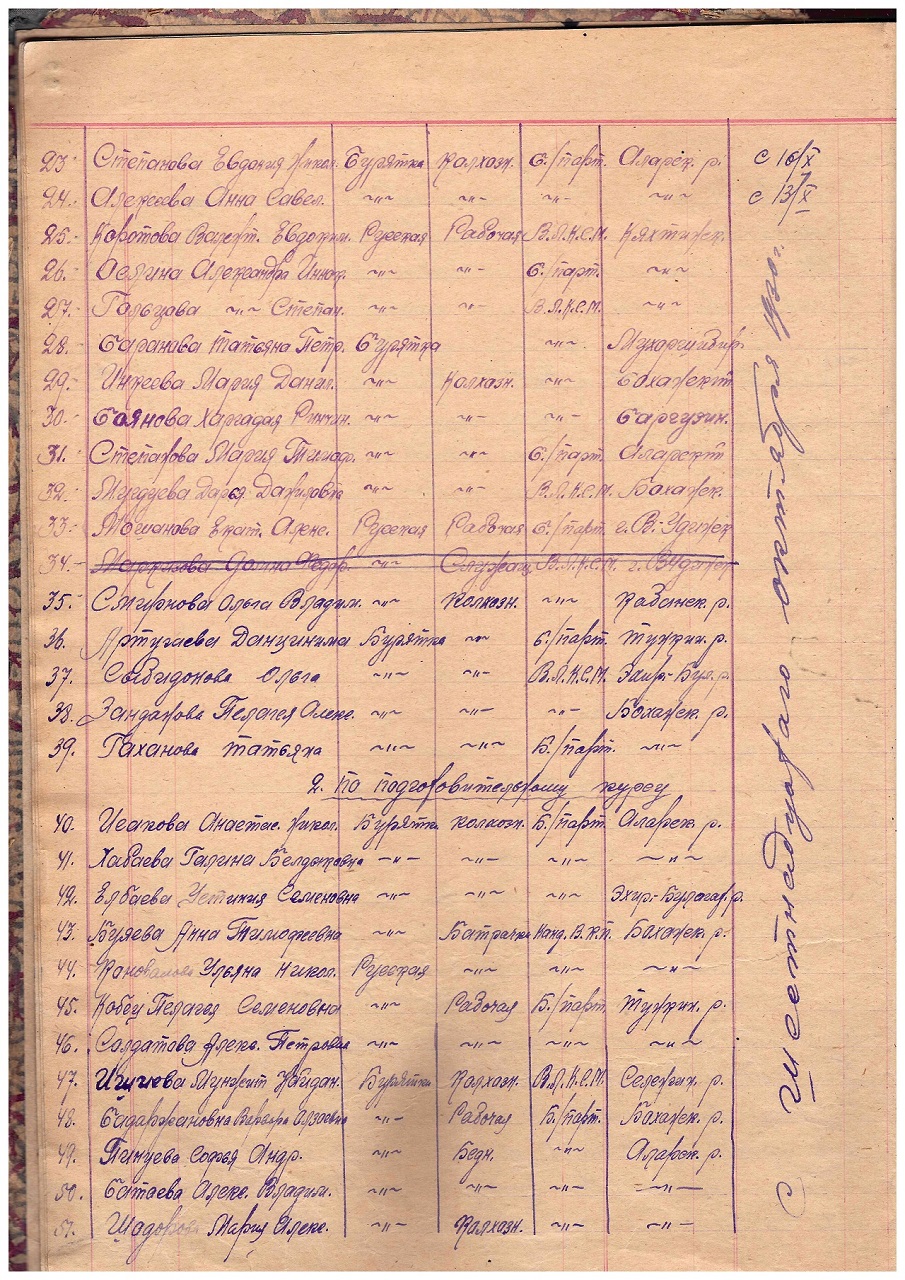 23. Степанова Евдокия Никол. Бурятка Колхозн. Б./парт. Аларск. р. с 16/X
24. Алексеева Анна Савел. -"- -"- -"- -"- с 13/X
25. Коротова Евдоким. Русская Рабочая В.Л.К.С.М. Кяхтинск.
26. Александра Иннок. -"- -"- б./парт. -"-
27. Гольцова -"- Степан. -"- -"- В.Л.К.С.М. -"-
28. Баранова Татьяна Петр. Бурятка -"- Мухоршибир.
29. Инкеева Мария Данил. -"- Колхозн. -"- Боханский
30. Боянова Ринчин. -"- -"- -"- Баргузин.
31. Степанова Мария Тимоф. -"- -"- б./парт. Аларский
32. Дарья Даниловна -"- -"- В.Л.К.С.М. Боханск.
33. Мошанова Екат. Алекс. Русская Рабочая б./парт. г. В. Удинск
34. -"- Служащ. В.Л.К.С.М.
35. Смирнова Ольга Владим. -"- Колхозн. -"- Кабанск. р.
36. Артугаева Данцинима Бурятка -"- б./парт. Тункин. р.
37. Сабидонова Ольга -"- -"- В.Л.К.С.М. Эхир.-Бул. р.
38. Занданова Пелагея Алекс. -"- -"- -"- Боханск. р.
39. Гаханова Татьяна -"- -"- Б./парт. -"-
2. По подготовительному курсу
40. Исакова Анастас. Никол. Бурятка колхозн. Б./парт. Аларск. р.
41. Хабаева Галина -"- -"- -"- -"-
42. Елбаева Устиния Семеновна -"- -"- -"- Эхир.-Булагат. р.
43. Буяева Анна Тимофеевна -"- Батрачка Канд. В.К.П. Боханск. р.
44. Коновалова Ульяна Никол. Русская -"- -"- -"-
45. Кобец Пелагея Семеновна -"- Рабочая Б./парт. Тункин. р.
46. Солдатова Алекс. Петровна -"- -"- -"- -"-
47. Бурятка Колхозн. В.Л.К.С.М. Селенгин. р.
48. Варвара -"- Рабочая Б./парт. Боханск. р.
49. Пинцева Софья Андр. -"- Бедн. -"- Аларск. р.
50. Батаева Алекс. Владим. -"- -"- -"- -"-
51. Мария Алекс. -"- Колхозн. -"- -"-
С Шестнадцатаго октября 1930 г.